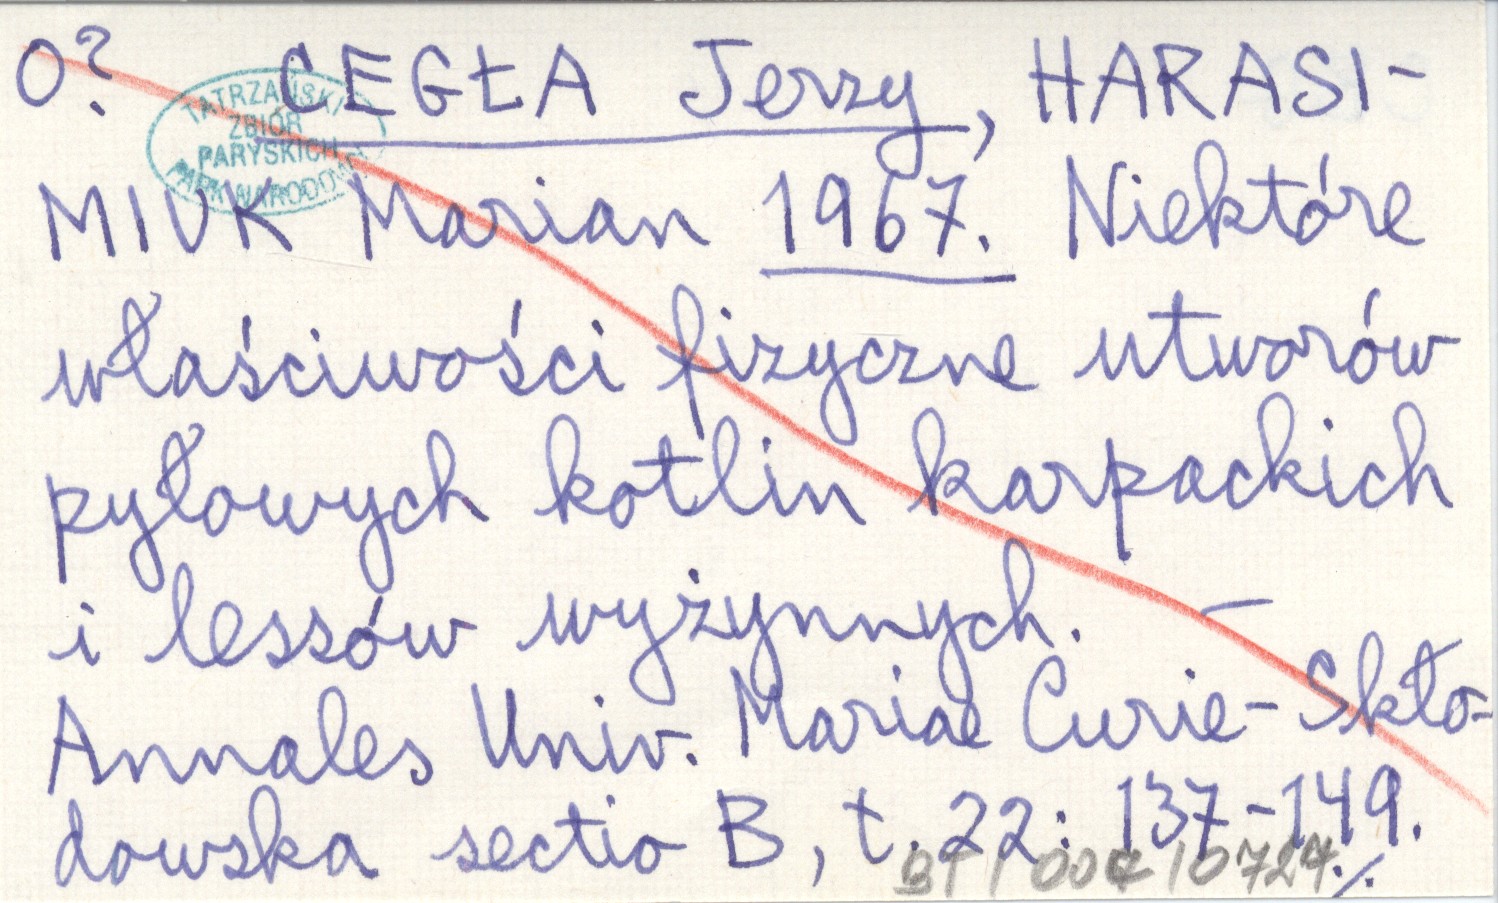 O? CEGŁA Jerzy, HARASI-
TATRZAŃSKI
ZBIÓR
PARYSKICH
PARK NARODOWY
MIUK Marian 1967. Niektóre
właściwości fizyczne utworów
pyłowych kotlin karpackich
i lessów wyżynnych. —
Annales Univ. Mariae Curie-Skło-
dowska sectio B, t. 22: 137-149.